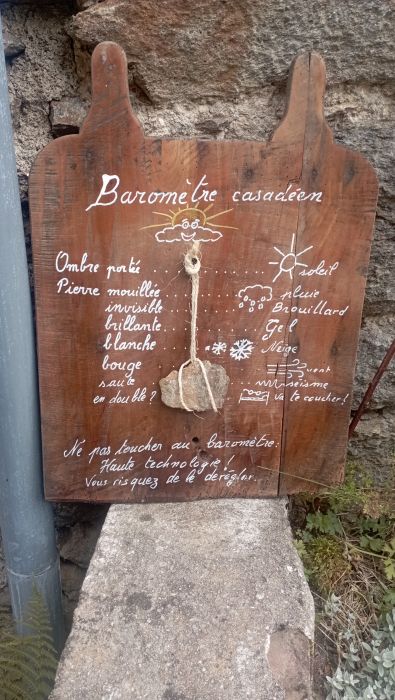 Baromètre casadéen
Ombre portée ........ soleil
Pierre mouillée ........ pluie
invisible ........ Brouillard
brillante ........ Gel
blanche ........ Neige
bouge vent
saute séisme
en double ? va te coucher !
Ne pas toucher au baromètre :
Haute technologie !
Vous risquez de le dérégler.